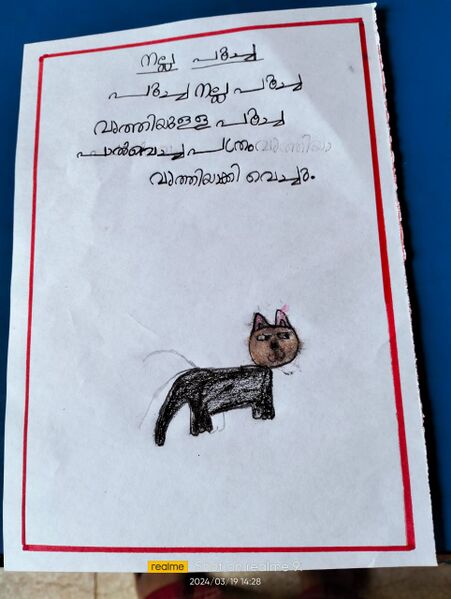 നല്ല പൂച്ച
പൂച്ച നല്ല പൂച്ച
വൃത്തിയുളള പൂച്ച
പാൽവെച്ച പത്രം വൃത്തിയാ
വൃത്തിയാക്കി വെച്ചു.
realme Shot on realme
2024/03/19 14:28